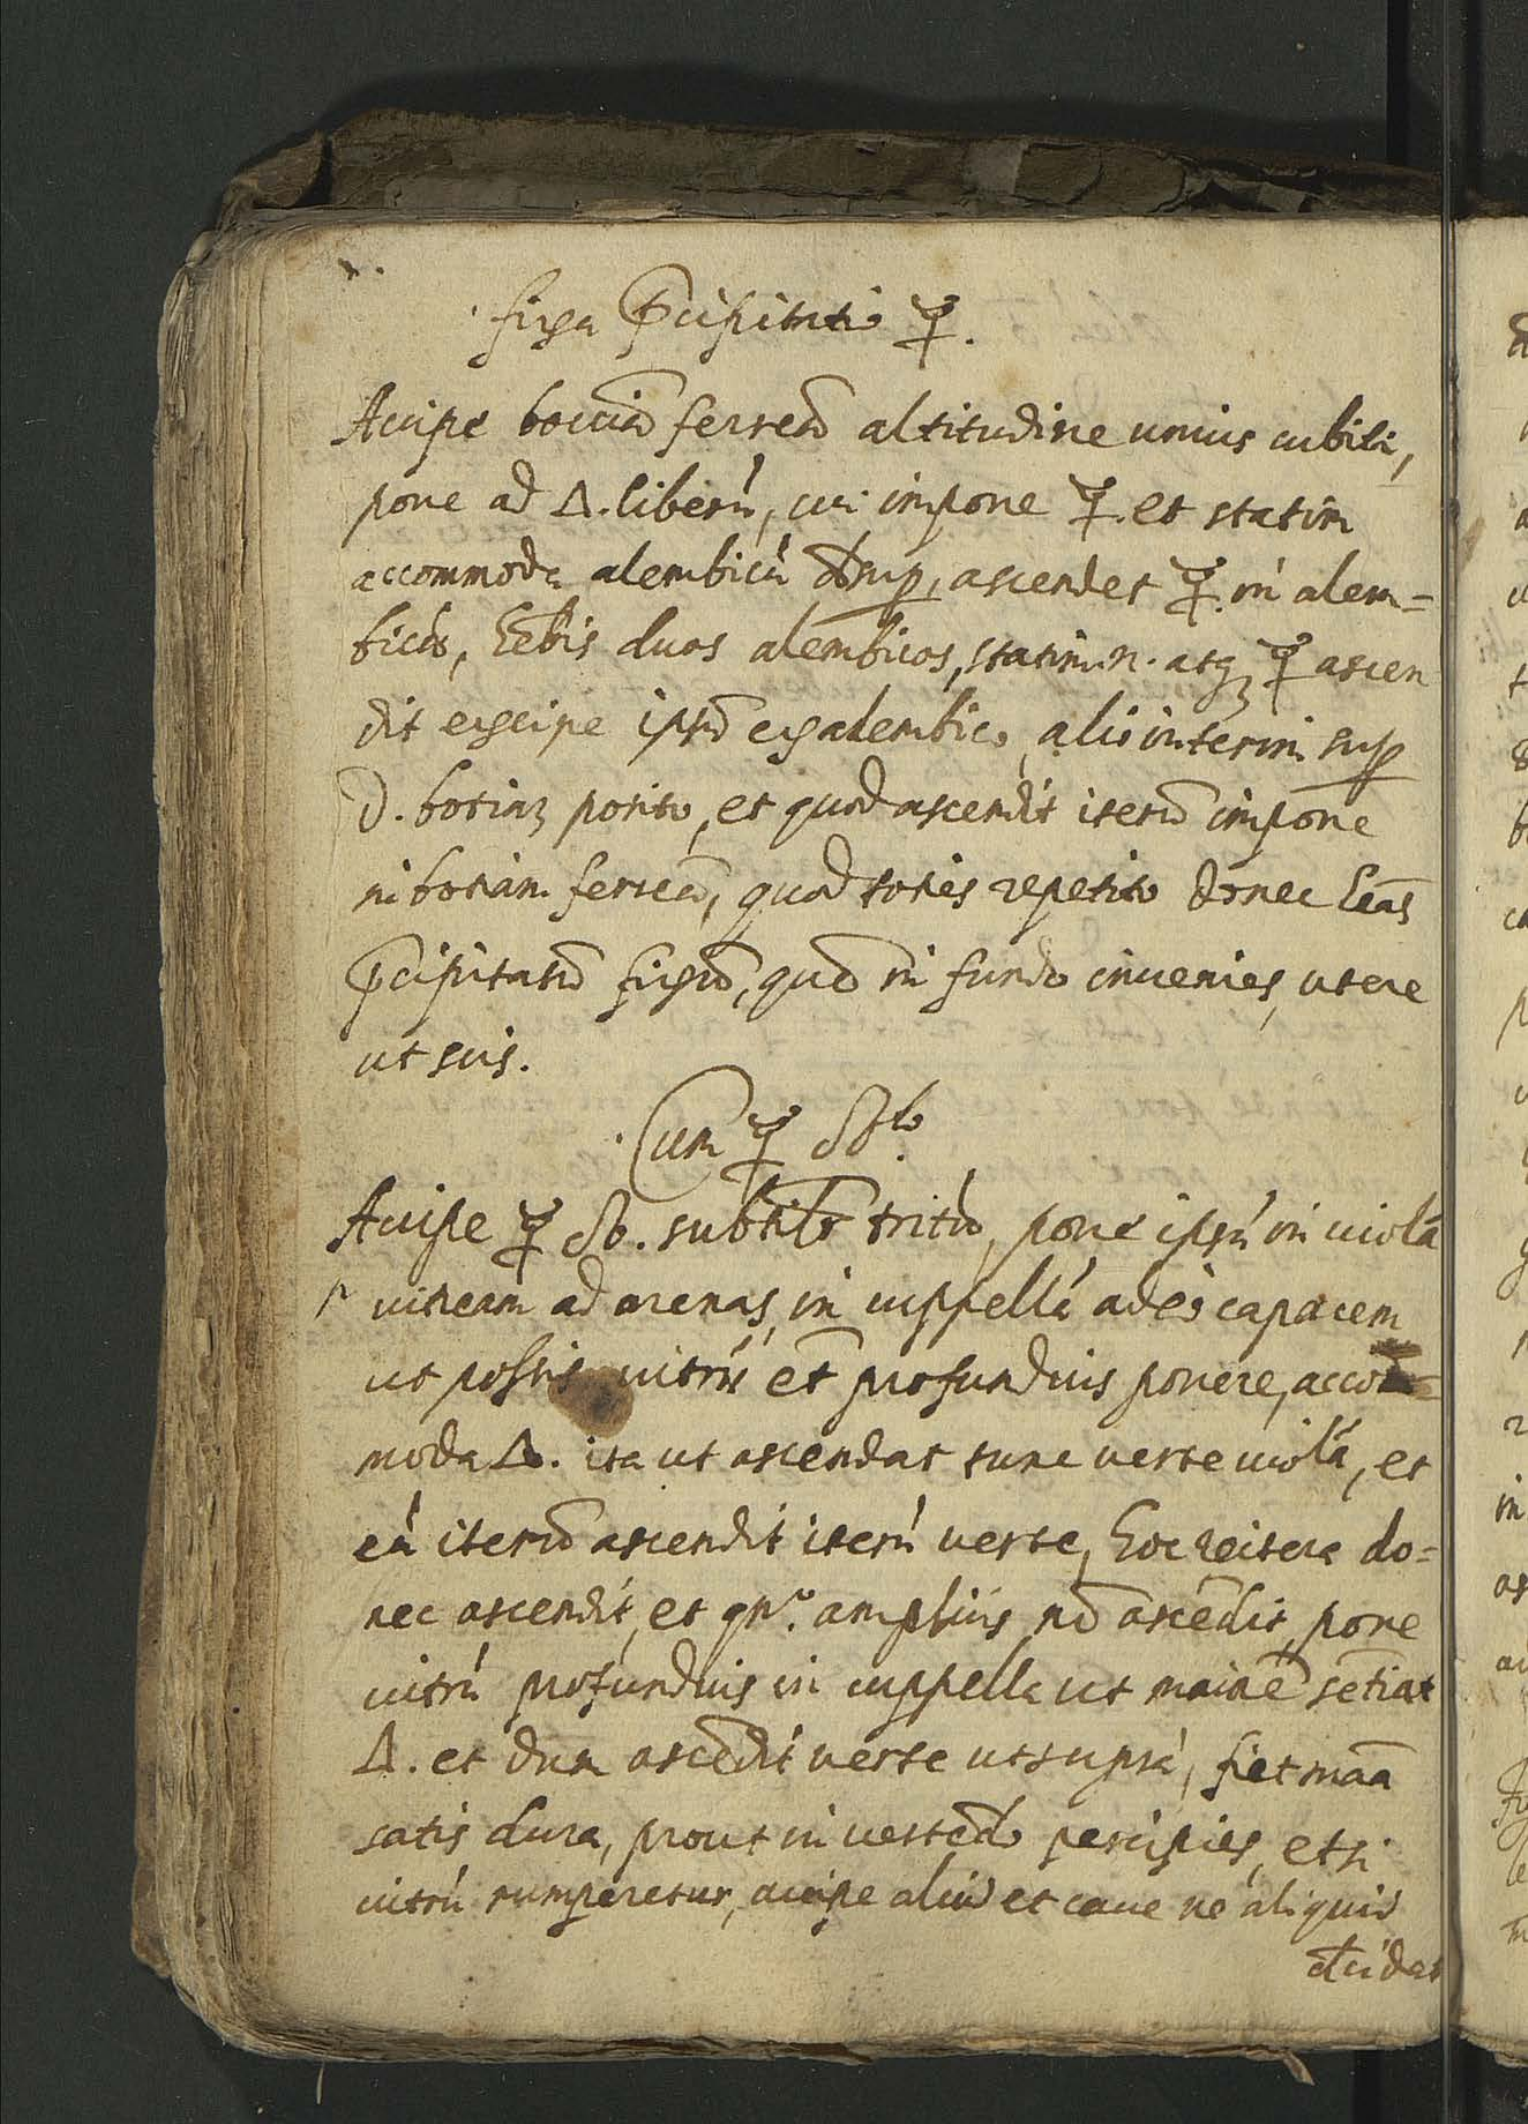 fixa p̃cipitatio ☿.
Accipe bocciã ferreã altitudine unius cubiti,
pone ad △. liberũ, cui impone ☿. et statim
accommoda alembicũ desup, ascendet ☿. in alem=
bicũ, hẽbis duos alembicos, statim .n. atq; ☿ ascen
dit excipe ipsũ ex alembico, alio interim sup
d. botiaz posito, et quod ascendit iterũ impone
in botiam ferreã, quod toties repetito donec heãs
p̃cipitatũ fixũ, quod in fundo invenies, utere
ut scis.
Cum ☿ subto.
Accipe ☿ sub. subtilr tritũ, pone ipsũ in violã
vitream ad arenas, in cuppellã adeo capacem
ut possis vitrũ et profundius ponere, accom=
moda △. ita ut ascendat tunc verte violã, et
cũ iterũ ascendit iterũ verte, hoc reitera do=
nec ascendit, et qn̄. amplius nõ ascẽdit, pone
vitrũ profundius in cuppella ut maiorẽ sẽtiat
△. et dum ascẽdit verte ut suprà, fiet maã
satis dura, prout in vertẽdo percipies, et si
vitrũ rumperetur, accipe aliud et cave ne aliquid